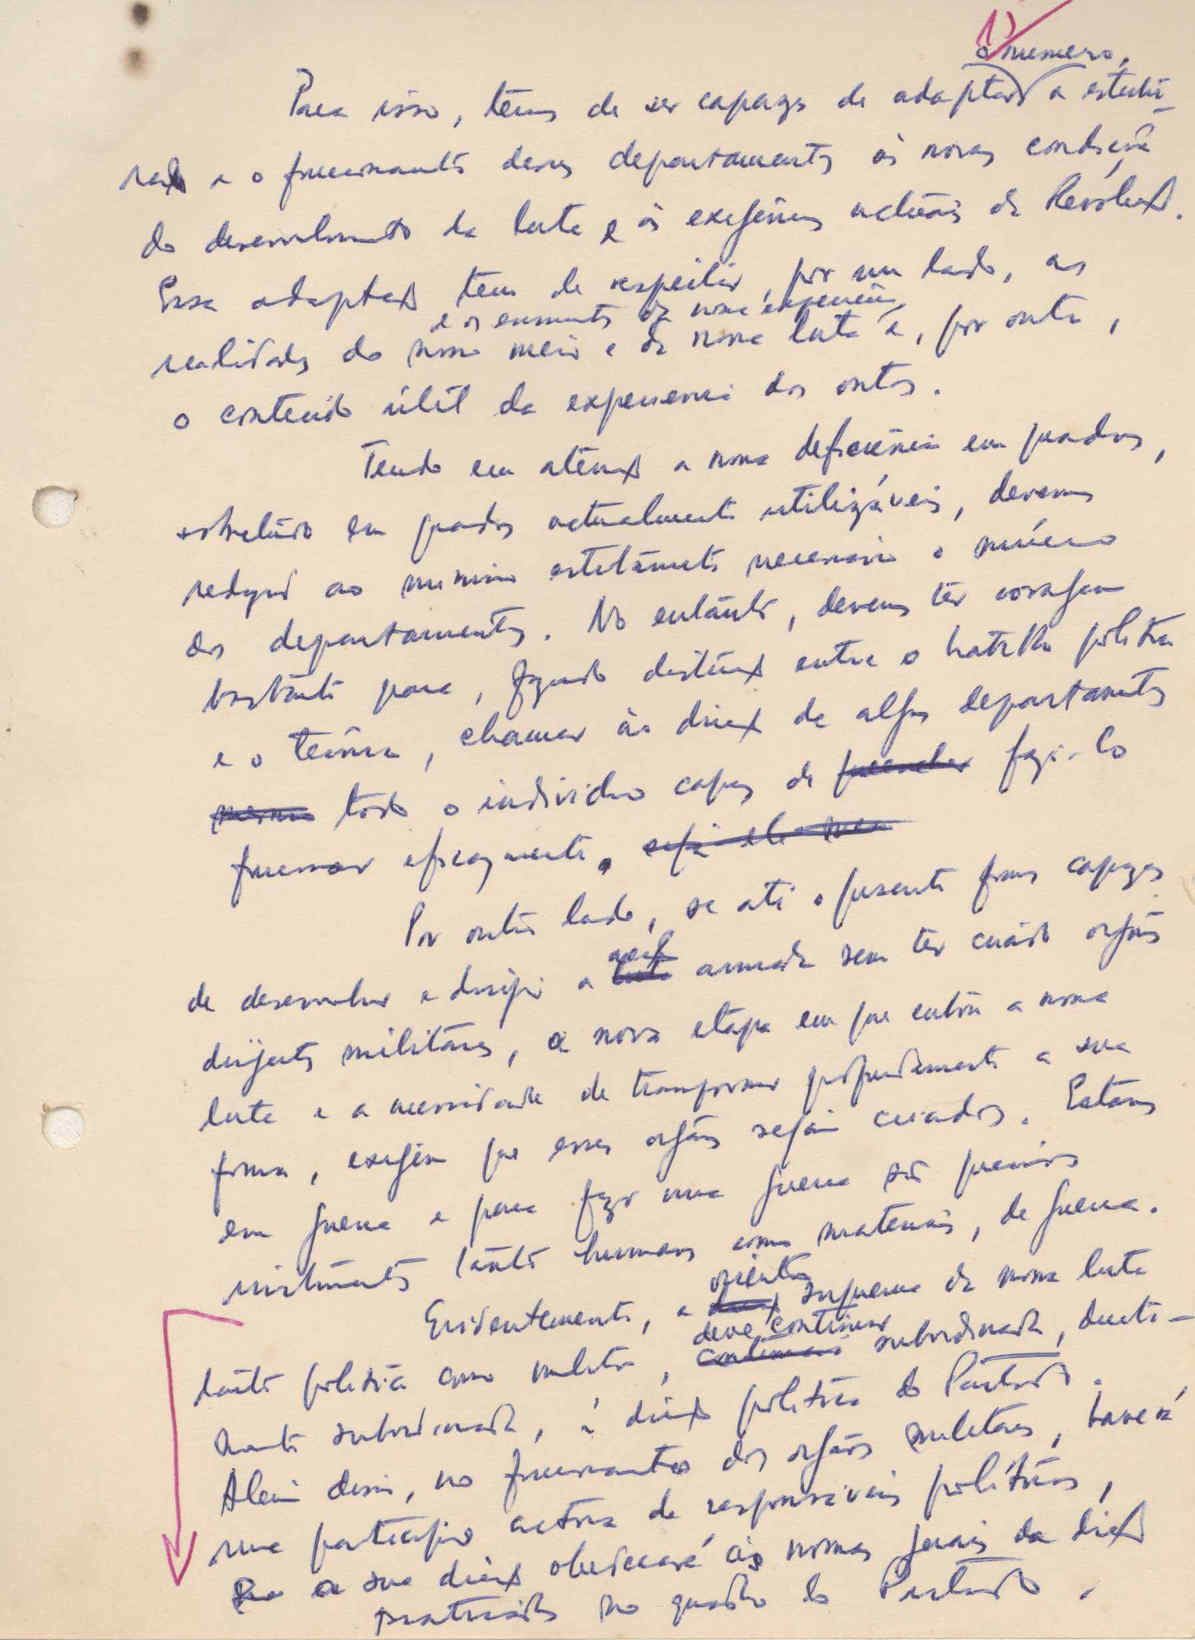 o numero,
Para isso, temos de ser capazes de adaptar a estrutu-
ra e o funcionamento desses departamentos às novas condições
do desenvolvimento da luta e às exigências actuais da Revolução.
Essa adaptação tem de respeitar, por um lado, as
e os ensinamentos da nossa experiência
realidades do nosso meio e da nossa luta e, por outro,
o conteúdo útil da experiencia dos outros.
Tendo em atenção a nossa deficiência em quadros,
sobretudo em quadros actualmente utilizáveis, devemos
reduzir ao minimo estritamente necessário o número
dos departamentos. No entanto, devemos ter coragem
bastante para, fazendo distinção entre o trabalho politico
e o técnico, chamar à direcção de alguns departamentos
mesmo todo o individuo capaz de preencher fazê-lo
funcionar eficazmente. seja ele
Por outro lado, se até o presente fomos capazes
acção
de desenvolver e dirigir a luta armada sem ter criado orgãos
dirigentes militares, a nova etapa em que entrou a nossa
luta e a necessidade de transformar profundamente a sua
forma, exigem que esses orgãos sejam criados. Estamos
em guerra e para fazer uma guerra são precisos
instrumentos tanto humanos como materiais, de guerra.
orientação
Evidentemente, a direcção suprema da nossa luta
deve continuar
tanto politica como militar, continuará subordinada, directa-
mente subordinada, à direcção politica do Partido.
Além disso, no funcionamento dos orgãos militares, haverá
uma participação activa de responsáveis politicos,
e a sua direcção obedecerá às normas gerais da direcção
praticadas no quadro do Partido.